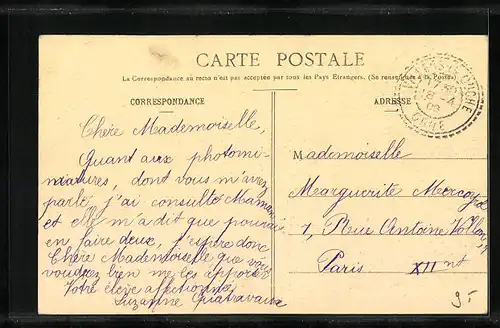 CARTE POSTALE
La Correspondance au recto n'est pas acceptée par tous les Pays Etrangers. (Se renseigner à la Poste)
CORRESPONDANCE
ADRESSE
Chère Mademoiselle,
Quant aux photomi-
niatures, dont vous m'avez
parlé, j'ai consulté Maman
et elle m'a dit que je pourrais
en faire deux, j'espère donc
Chère Mademoiselle que vous
voudrez bien me les apporter
Votre élève affectionnée
Suzanne Quatravaux
Mademoiselle
Marguerite
1, Rue Antoine Vollon
Paris XII
OISE
9-